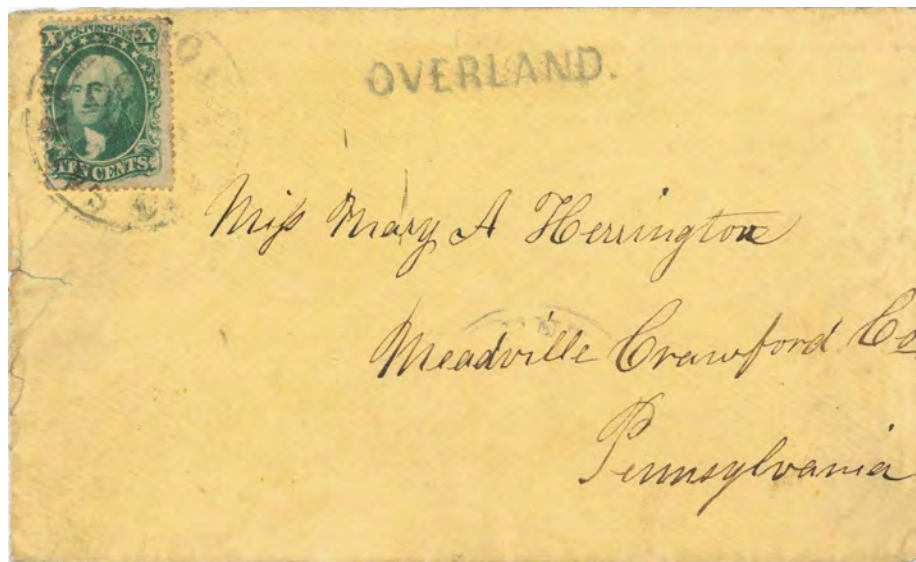 X U.S. POSTAGE X
TEN CENTS.
OVERLAND.
Miss Mary A Herrington
Meadville Crawford Co
Pennsylvania